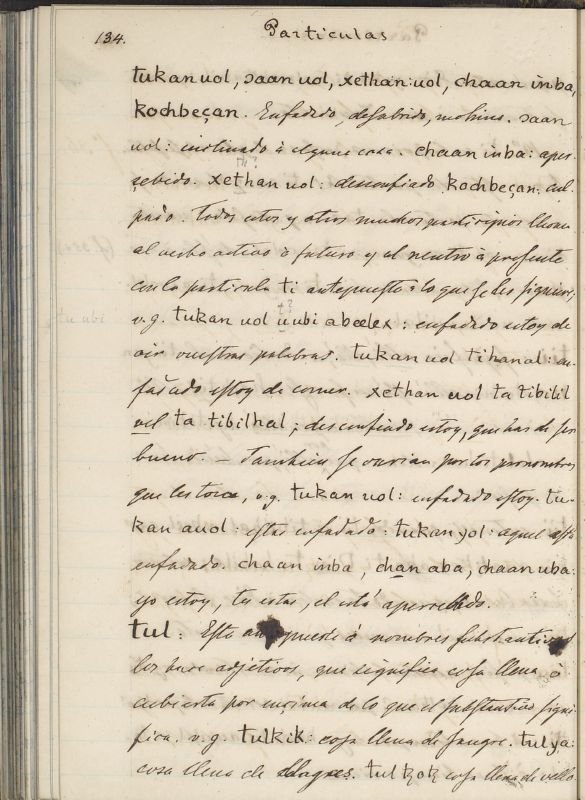 134.
Particulas
tukan uol, saan uol, xethan uol, chaan inba,
kochbeçan. Enfadado, desabrido, mohino. saan
uol: inclinado à alguna cosa. chaan inba: aper-
th?
cebido. xethan uol: desconfiado, kochbeçan: cul
pado. todos estos y otros muchos participios llevan
al verbo activo à futuro y el neutro à presente
con la particula ti antepuesta à lo que se les siguiere,
t?
v.g. tukan uol uubi abeelex: enfadado estoy de
tu ubi
oir vuestras palabras. tukan uol tihanal: en-
fadado estoy de comer. xethan uol ta tibilil
vel ta tibilhal; desconfiado estoy, que has de ser
bueno. – Tambien se varian por los pronombres
que les toca, v.g. tukan uol: enfadado estoy. tu-
kan auol: estas enfadado: tukan yol: aquel està
enfadado. chaan inba, chan aba, chaan uba:
yo estoy, tu estas, el està apercebido.
tul: Este antepuesto à nombres substantivos
los hace adjetivos, que significa cosa llena ò
cubierta por encima de lo que el substantivo signi
fica. v.g. tulkik: cosa llena de sangre. tulya:
cosa llena de llagas. tul tzotz cosa llena de vello